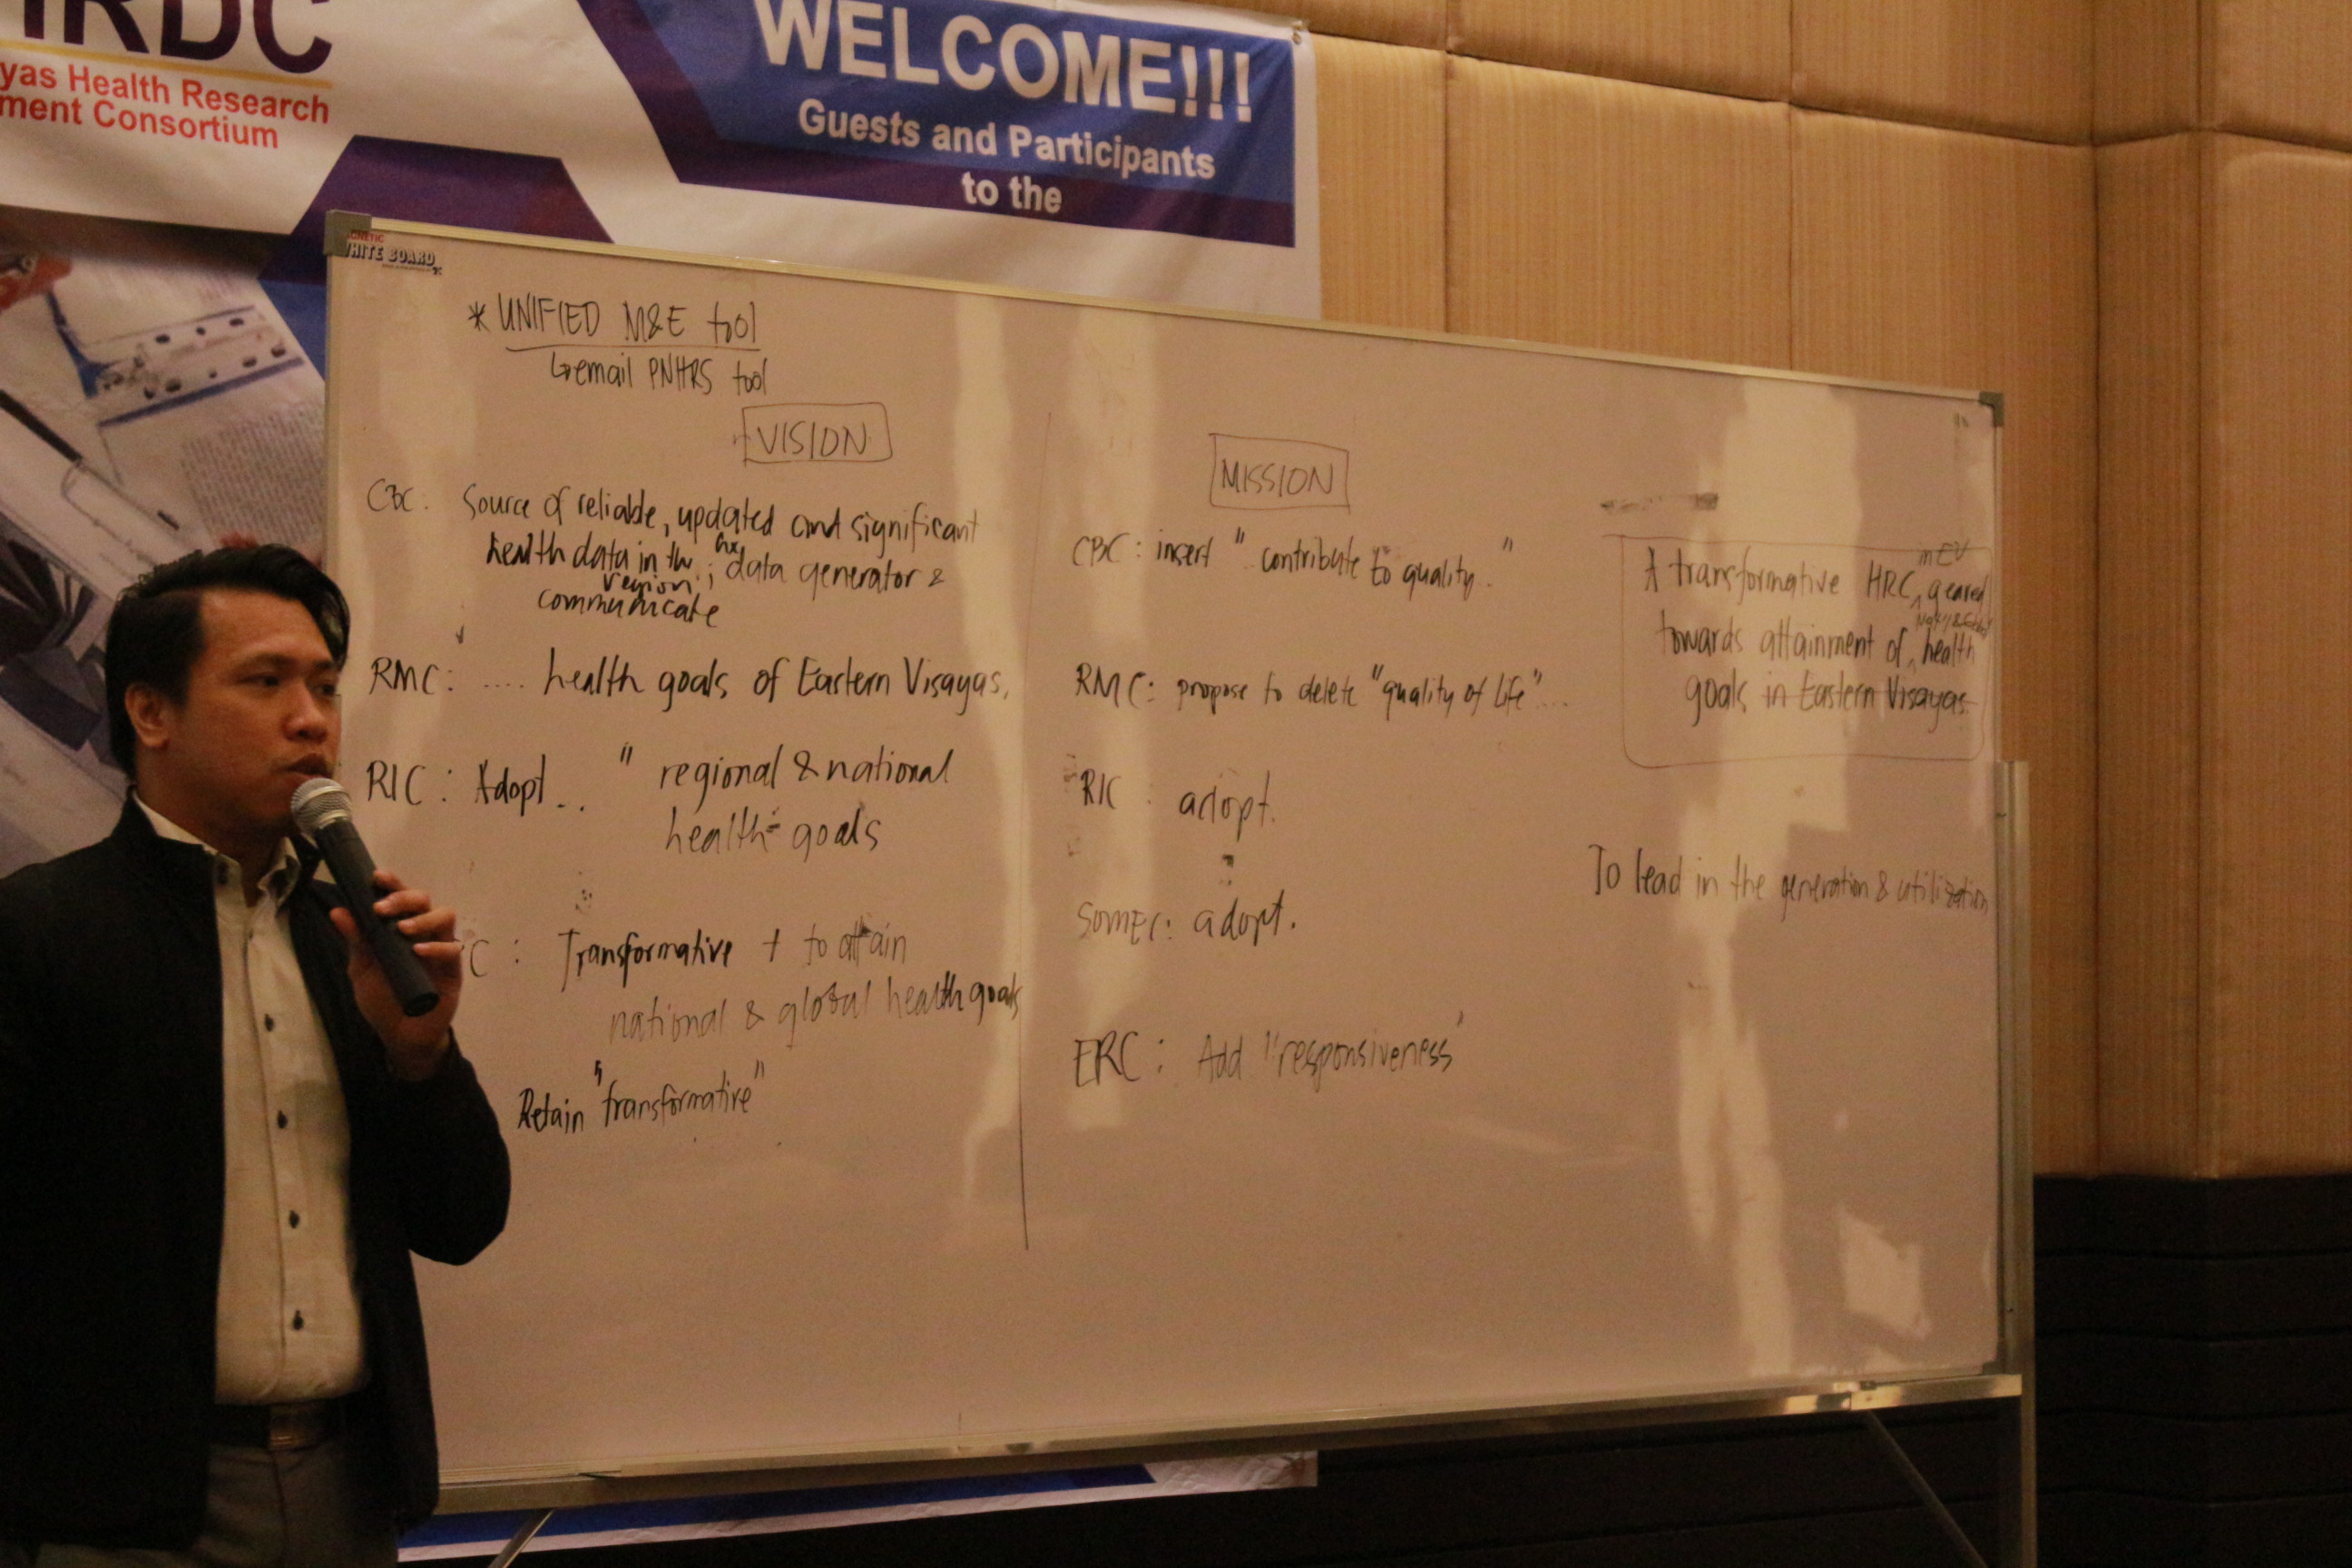 HRDC
yas Health Research
ment Consortium
WELCOME!!!
Guests and Participants
to the
WHITE BOARD
* UNIFIED M&E tool
↳ email PNHRS tool
VISION
CBC: Source of reliable, updated and significant
health data in the region; data generator &
communicate
RMC: .... health goals of Eastern Visayas.
RIC: Adopt.. " regional & national
health goals
C: Transformative + to attain
national & global health goals
Retain "transformative"
MISSION
CBC: insert " contribute to quality.."
RMC: propose to delete "quality of life"...
RIC: adopt.
SOMEC: adopt.
ERC: Add "responsiveness"
A transformative HRC in EV geared
towards attainment of health
goals in Eastern Visayas.
To lead in the generation & utilization